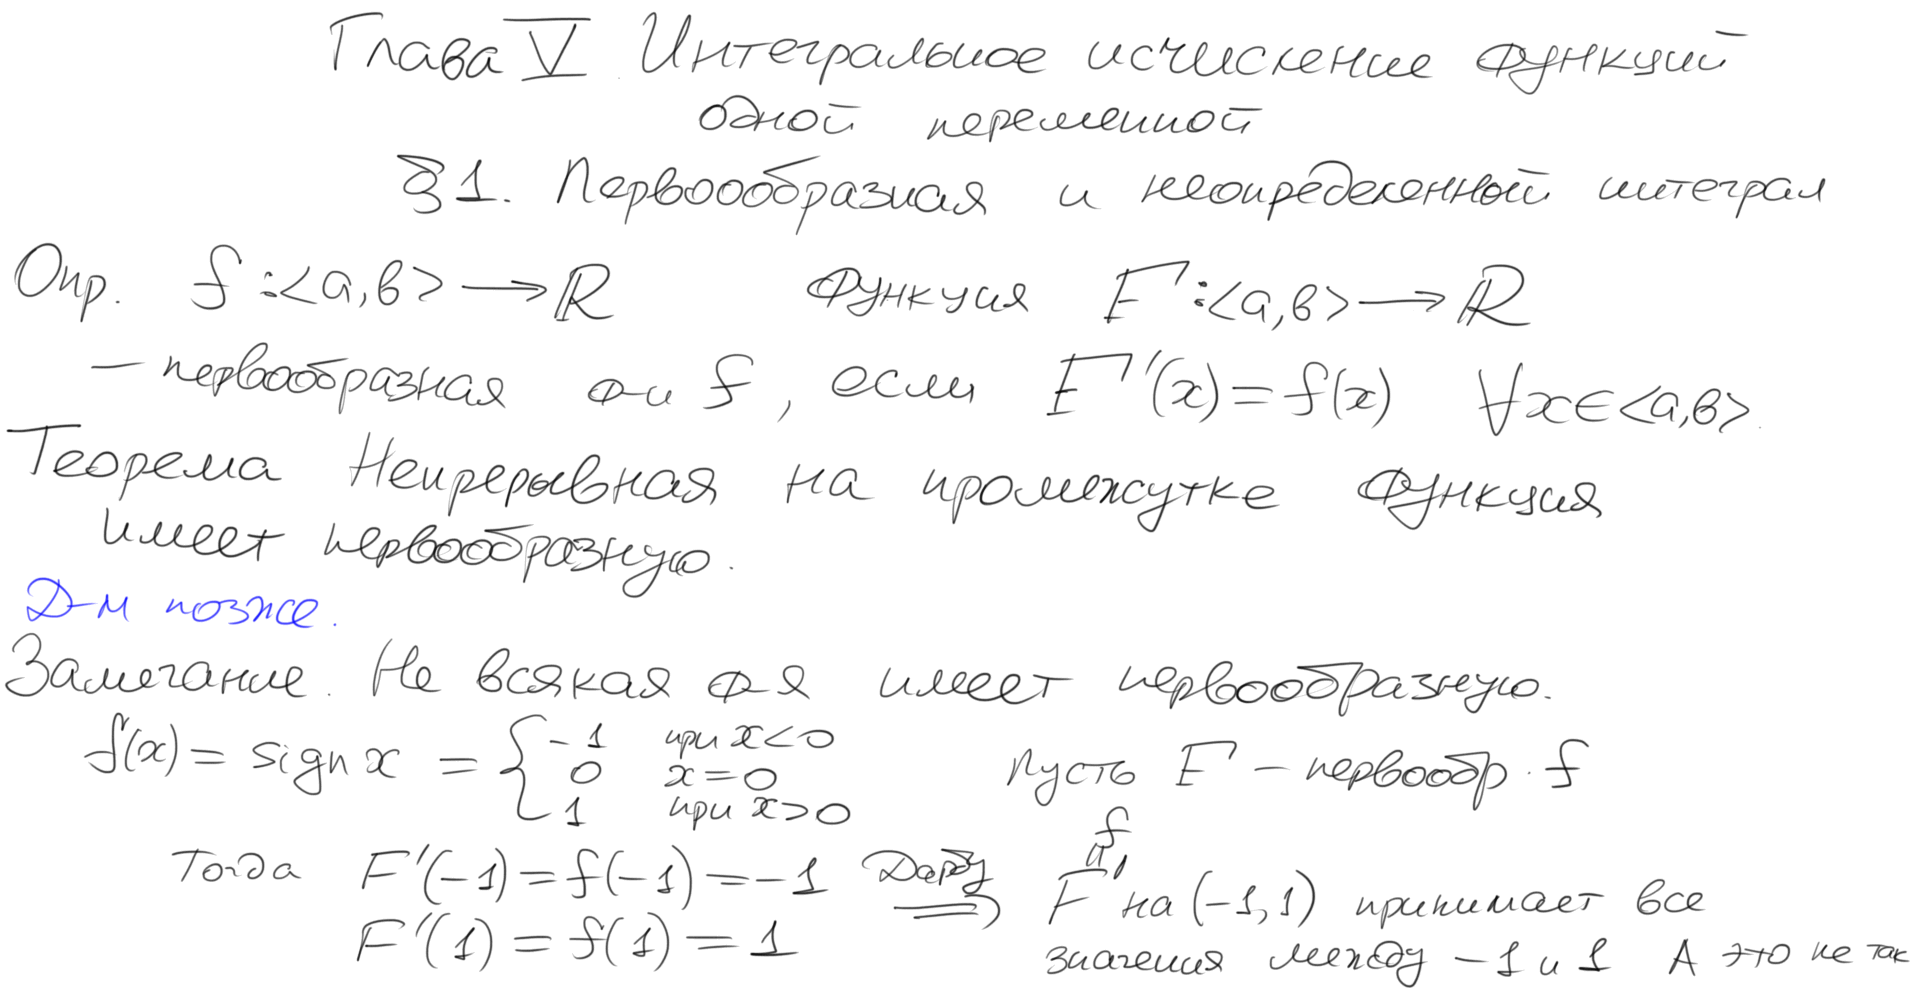 Глава V Интегральное исчисление функций
одной переменной
§1. Первоообразная и неопределенной интеграл
Опр. f:<a,b>→ℝ Функция F:<a,b>→ℝ
— первообразная ф-и f, если F'(x)=f(x) ∀x∈<a,b>.
Теорема Непрерывная на промежутке функция
имеет первообразную.
Д-м позже.
Замечание. Не всякая ф-я имеет первообразную.
f(x) = sign x = { -1 при x<0
0 x=0
1 при x>0
Пусть F — первообр. f
Тогда F'(-1)=f(-1)=-1
F'(1)=f(1)=1
Дарбу ⟹
f
=
F' на (-1,1) принимает все
значения между -1 и 1 А это не так